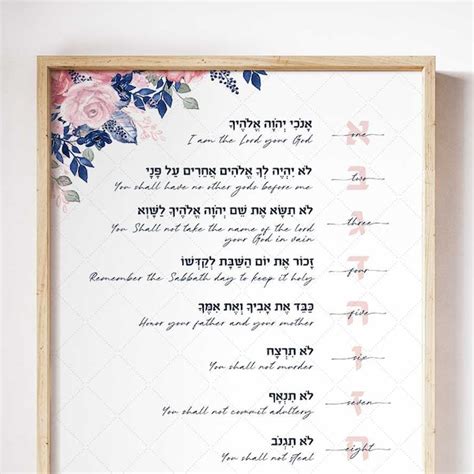 אָנֹכִי יְהֹוָה אֱלֹהֶיךָ א
I am the Lord your God one
לֹא יִהְיֶה לְךָ אֱלֹהִים אֲחֵרִים עַל פָּנָי ב
You shall have no other gods before me two
לֹא תִשָּׂא אֶת שֵׁם יְהֹוָה אֱלֹהֶיךָ לַשָּׁוְא ג
You Shall not take the name of the lord three
your God in vain
זָכוֹר אֶת יוֹם הַשַּׁבָּת לְקַדְּשׁוֹ ד
Remember the Sabbath day to keep it holy four
כַּבֵּד אֶת אָבִיךָ וְאֶת אִמֶּךָ ה
Honor your father and your mother five
לֹא תִרְצָח ו
You shall not murder six
לֹא תִנְאָף ז
You shall not commit adultery seven
לֹא תִגְנֹב ח
You shall not steal eight